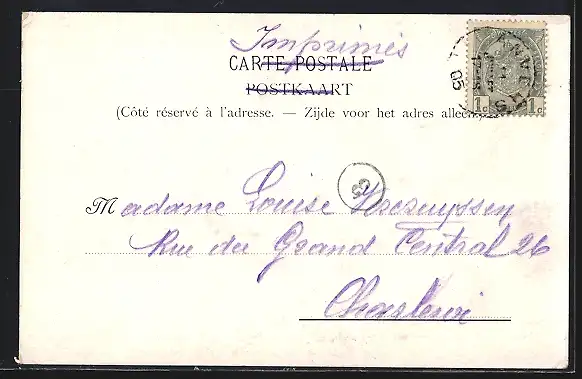 Imprimés
CARTE POSTALE
POSTKAART
(Côté réservé à l'adresse. — Zijde voor het adres alleen.)
ANVERS
05
1c 1c
Madame Louise
Rue du Grand Central 26
Charleroi